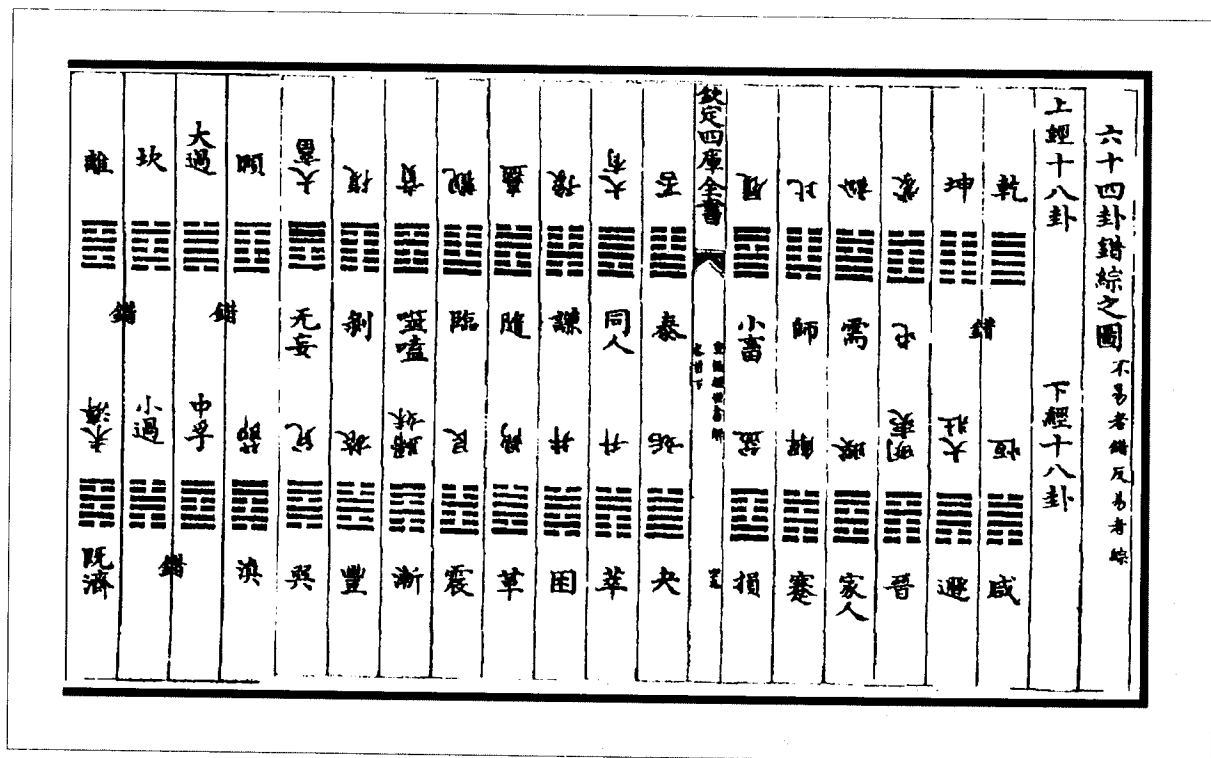 六十四卦錯綜之圖 不易者錯反易者綜
上經十八卦 下經十八卦
乾 恒 咸
錯
坤 大壯 遯
蒙 屯 明夷 晉
訟 需 睽 家人
比 師 解 蹇
履 小畜 益 損
欽定四庫全書
皇極經世書解
卷首下
否 泰 姤 夬
大有 同人 升 萃
豫 謙 井 困
蠱 隨 鼎 革
觀 臨 艮 震
賁 噬嗑 歸妹 漸
復 剝 旅 豐
大畜 无妄 兌 巽
頤 節 渙
錯
大過 中孚
錯
坎 小過
錯
離 未濟 既濟